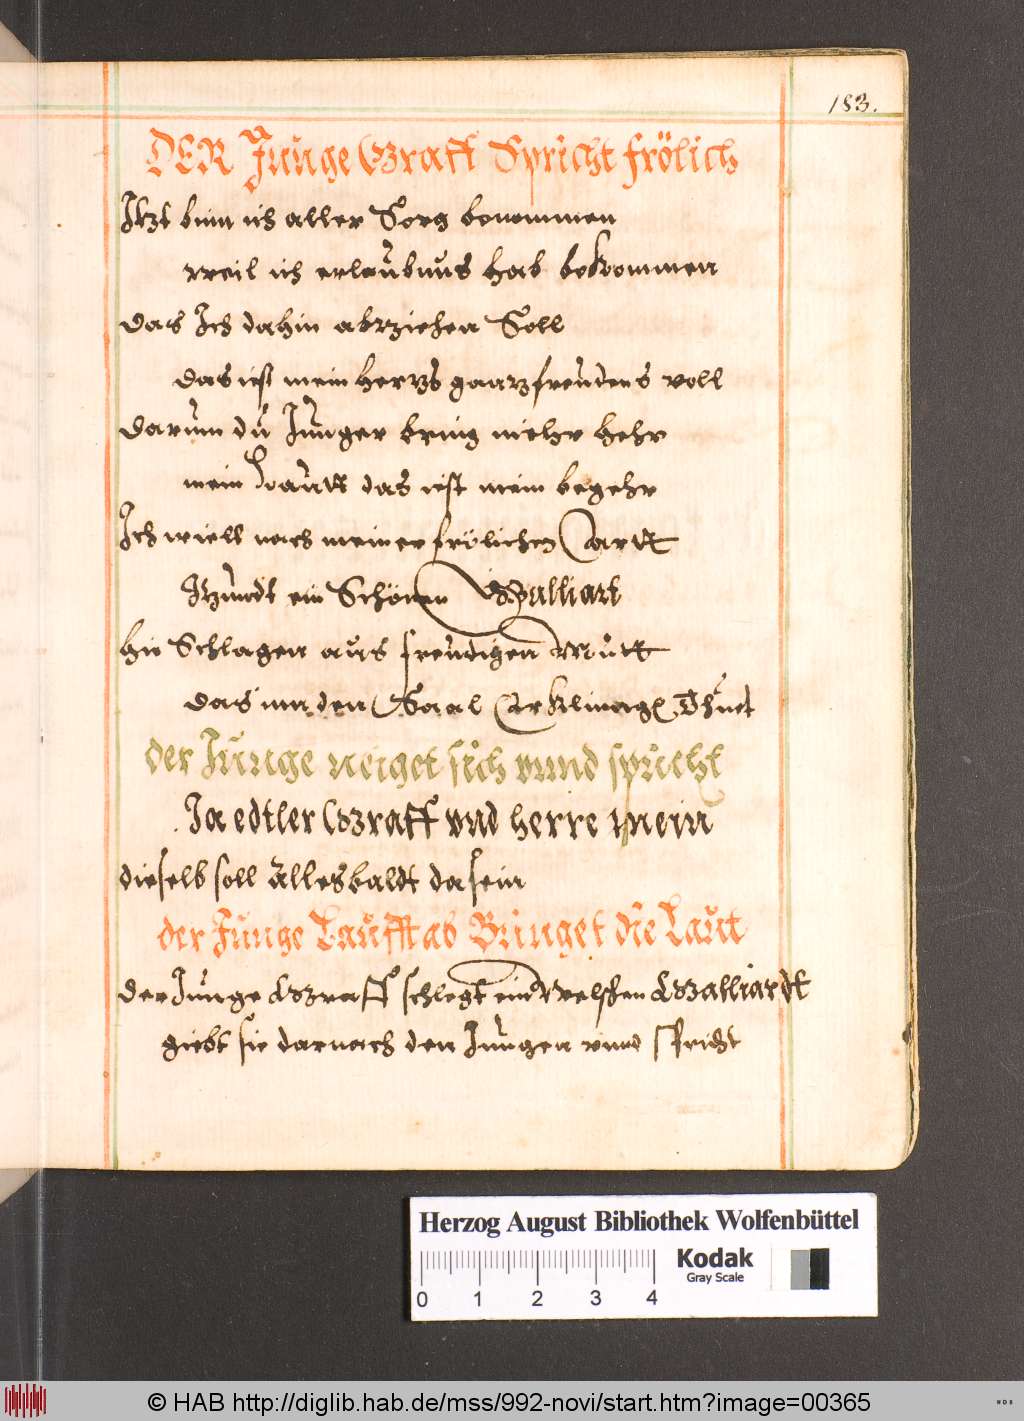 183.
DER Junge Graff Spricht frölich
Itzt binn ich aller Sorg benommen
weil ich erlaubnus hab bekommen
das Ich dahin abziehen Soll
das ist mein hertzs gantz freudens voll
darumm du Junger bring miehr hehr
mein Lautt das iest mein begehr
Ich wiell nach meiner frölichen Artt
Itzundt ein Schönen Galliart
hie Schlagen aus freudigen Mutt
das inn den Saal Erklingen Thuet
der Junge neiget sich vnnd spricht
Ja edtler Graff vnd herre mein
dieselb soll Alles baldt da sein
der Junge Laufft ab Bringet die Laut
der Junge Graff schlegt ein Welschen Galliardt
giebt sie darnach den Jungen vnnd spricht
Herzog August Bibliothek Wolfenbüttel
Kodak
Gray Scale
0 1 2 3 4
© HAB http://diglib.hab.de/mss/992-novi/start.htm?image=00365